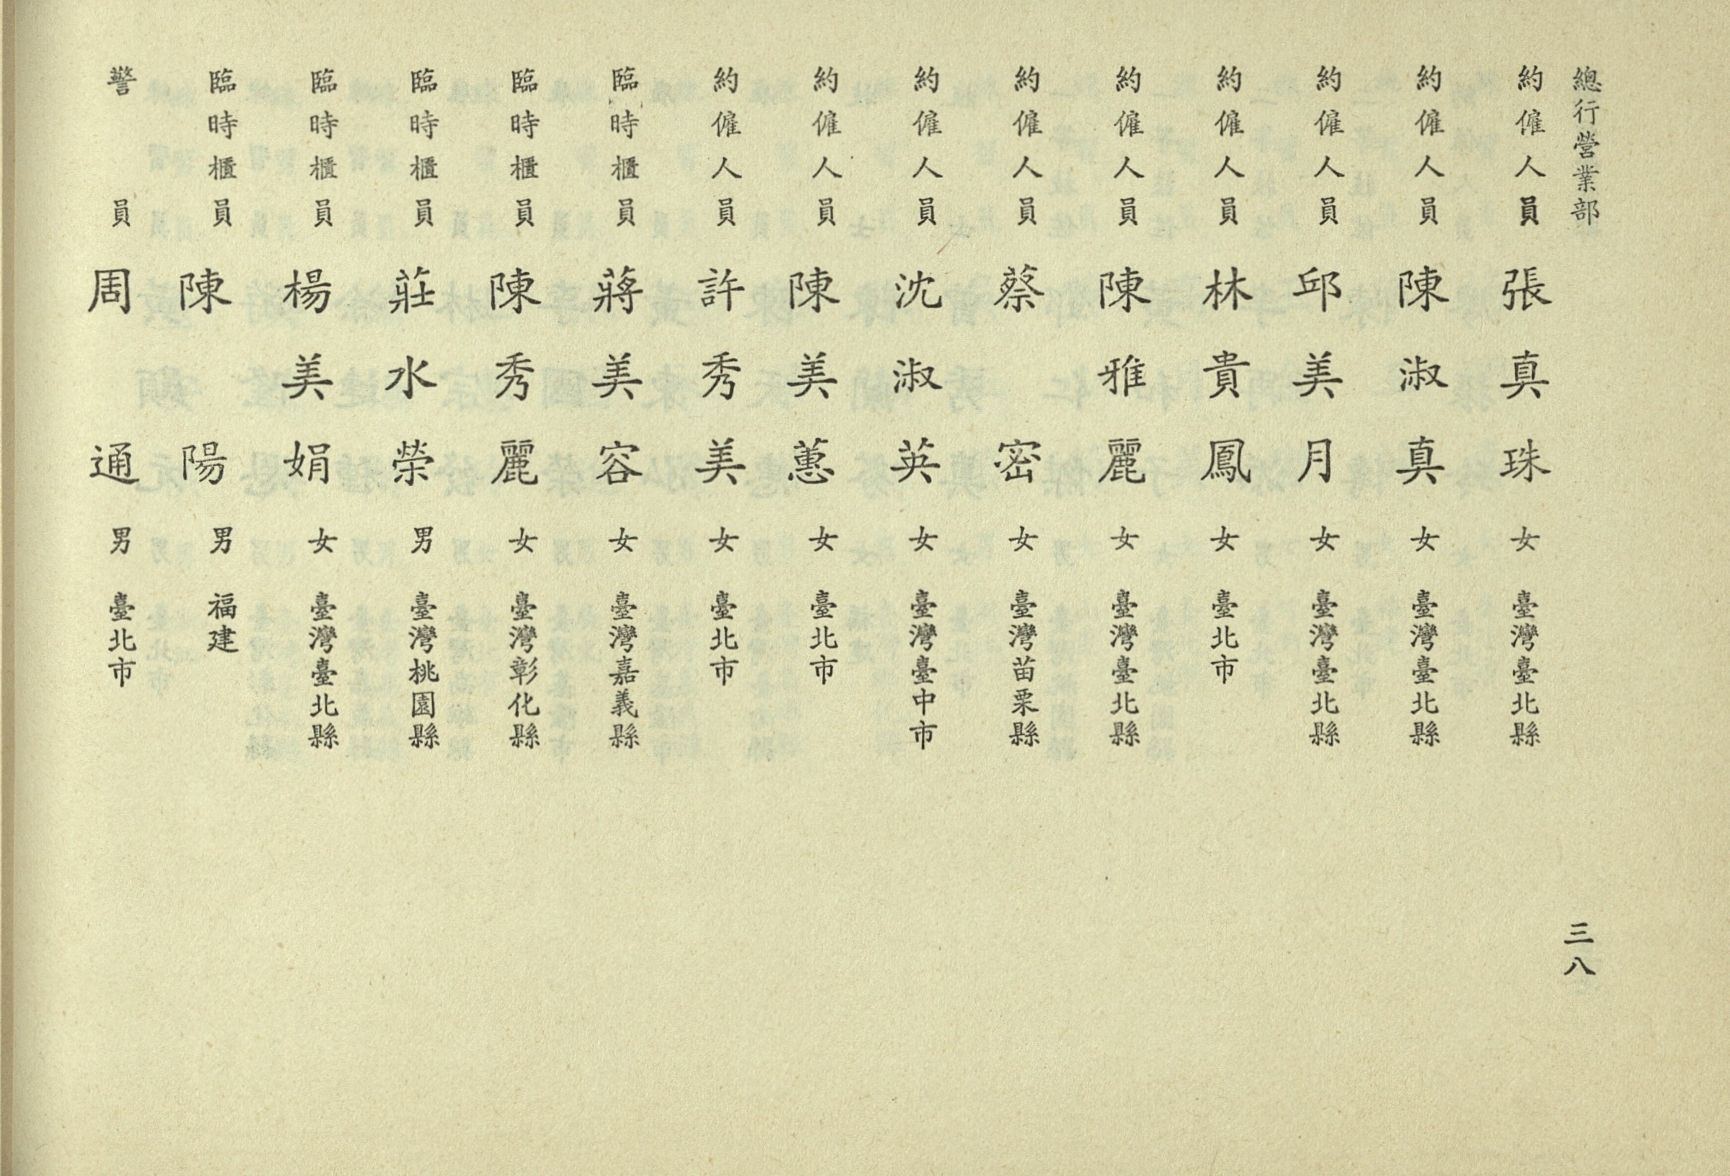 總行營業部
約僱人員 張真珠 女 臺灣臺北縣
約僱人員 陳淑真 女 臺灣臺北縣
約僱人員 邱美月 女 臺灣臺北縣
約僱人員 林貴鳳 女 臺北市
約僱人員 陳雅麗 女 臺灣臺北縣
約僱人員 蔡密 女 臺灣苗栗縣
約僱人員 沈淑英 女 臺灣臺中市
約僱人員 陳美蕙 女 臺北市
約僱人員 許秀美 女 臺北市
臨時櫃員 蔣美容 女 臺灣嘉義縣
臨時櫃員 陳秀麗 女 臺灣彰化縣
臨時櫃員 莊水榮 男 臺灣桃園縣
臨時櫃員 楊美娟 女 臺灣臺北縣
臨時櫃員 陳陽 男 福建
警員 周通 男 臺北市
三八